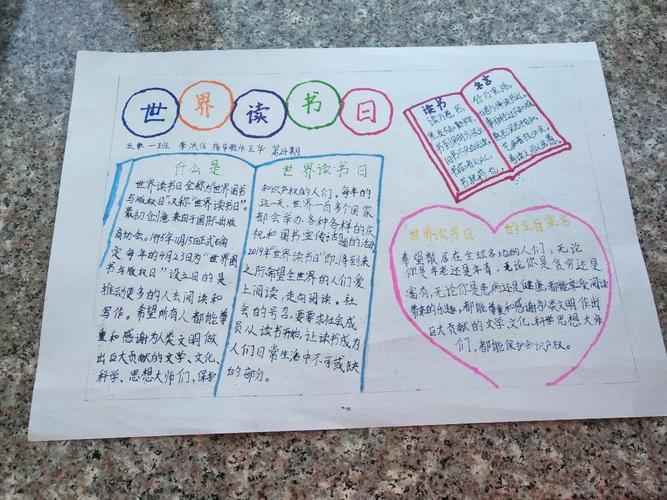 世界读书日
五年一班 李洪任 指导教师王华 第24期
什么是
世界读书日全称为世界图书
与版权日"又称"世界读书日"。
最初创意来自于国际出版
商协会。1995年11月15日正式确
定每年的4月23日为"世界图
书与版权日"设立目的是
推动更多的人去阅读和
写作。希望所有人都能尊
重和感谢为人类文明做
出巨大贡献的文学、文化、
科学、思想大师们,保护
世界读书日
知识产权的人们。每年的
这一天,世界一百多个国家
都会举办各种各样的庆
祝和图书宣传活动
2019年"世界读书日"即将到来
之际希望全世界的人们爱
上阅读,走向阅读。社会
的号召,要要求社会成
员从读书开始,让读书成为
人们日常生活中不可或缺
的部分。
读书
名言
世界读书日 的主旨宣言
希望散居在全球各地的人们,无论
你是年老还是年青,无论你是贫穷还是
富有,无论你是患病还是健康,都能享受阅读
带来的乐趣,都能尊重和感谢为人类文明作出
巨大贡献的文学、文化、科学思想大师
们,都能保护知识产权。